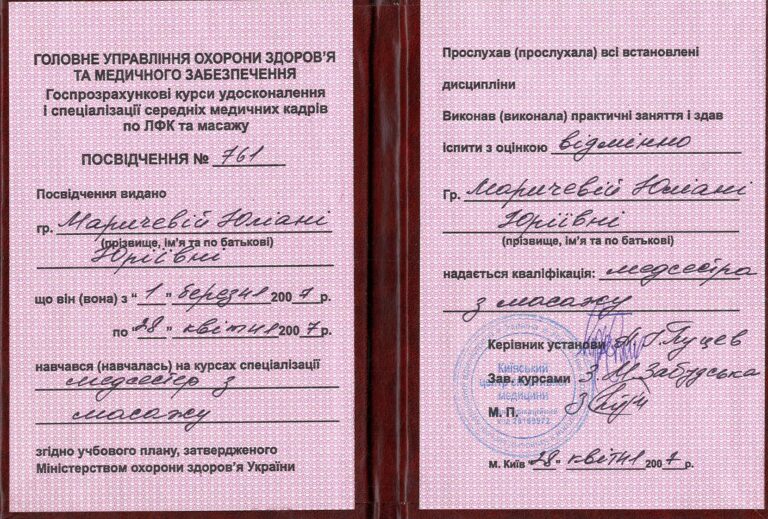 ГОЛОВНЕ УПРАВЛІННЯ ОХОРОНИ ЗДОРОВ'Я
ТА МЕДИЧНОГО ЗАБЕЗПЕЧЕННЯ
Госпрозрахункові курси удосконалення
і спеціалізації середніх медичних кадрів
по ЛФК та масажу
ПОСВІДЧЕННЯ № 761
Посвідчення видано
гр. Маричевій Юліані
(прізвище, ім'я та по батькові)
Юріївні
що він (вона) з "1" березня 2007 р.
по "28" квітня 2007 р.
навчався (навчалась) на курсах спеціалізації
медсестер з
масажу
згідно учбового плану, затвердженого
Міністерством охорони здоров'я України
Прослухав (прослухала) всі встановлені
дисципліни
Виконав (виконала) практичні заняття і здав
іспити з оцінкою відмінно
Гр. Маричевій Юліані
Юріївні
(прізвище, ім'я та по батькові)
надається кваліфікація: медсестра
з масажу
Керівник установи
Зав. курсами З.М. Забудська
М. П.
Київський
центр
медицини
код
м. Київ "28" квітня 2007 р.